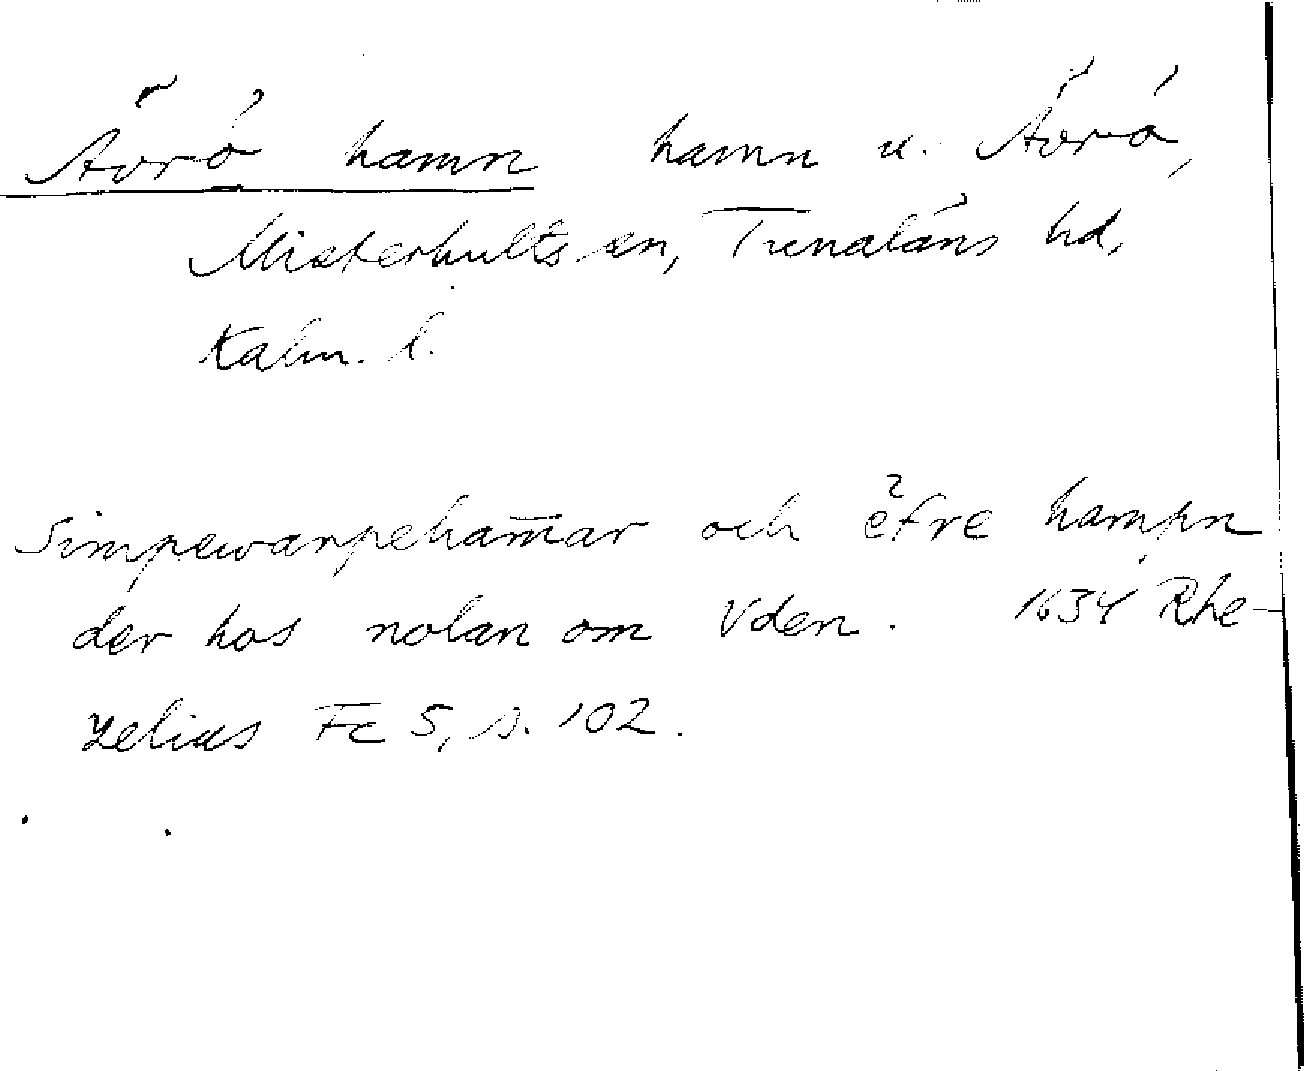 Ävrö hamn hamn u. Ävrö,
Misterhults sn, Tunaläns hd,
Kalm. l.
Simpewarpeham̄ar och efre hampn
der hos nolan om Vden. 1634 Rhe-
zelius Fc 5, s. 102.